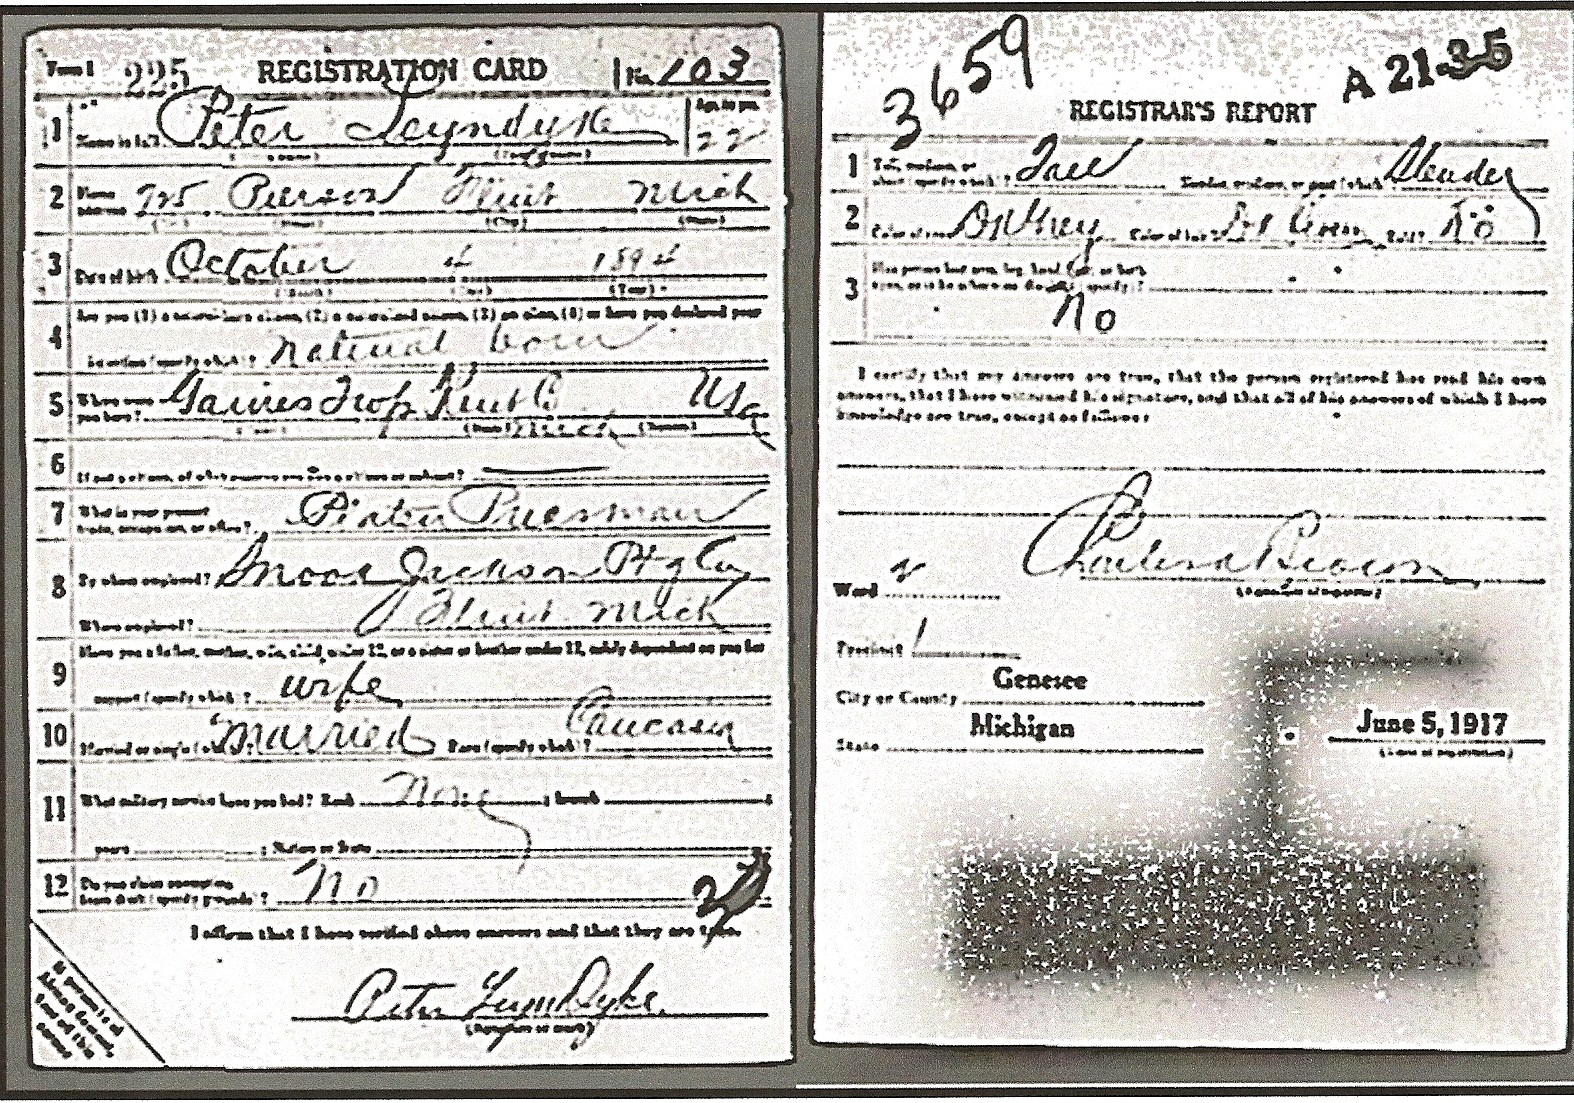 Form 1 225 REGISTRATION CARD No. 103
1 Name in full Peter Leyndyke Age in yrs. 22
(Given name) (Family name)
2 Home address 725 Pierson Flint Mich
(No.) (Street) (City) (State)
3 Date of birth October 4 1894
(Month) (Day) (Year)
4 Are you (1) a natural-born citizen, (2) a naturalized citizen, (3) an alien, (4) or have you declared your
intention (specify which)? Natural born
5 Where were you born? Gaines Twp Kent Co Mich Usa
(Town) (State) (Nation)
6 If not a citizen, of what country are you a citizen or subject?
7 What is your present trade, occupation, or office? Pressman
8 By whom employed? Jackson Ptg Co
Where employed? Flint Mich
9 Have you a father, mother, wife, child under 12, or a sister or brother under 12, solely dependent on you for
support (specify which)? wife
10 Married or single (which)? Married Race (specify which)? Caucasian
11 What military service have you had? Rank None ; branch
years ; Nation or State
12 Do you claim exemption from draft (specify grounds)? No
I affirm that I have verified above answers and that they are true.
Peter LeynDyke
(Signature or mark)
If person is of African descent, tear off this corner
3659 A 21-35
REGISTRAR'S REPORT
1 Tall, medium, or short (specify which)? Tall Slender, medium, or stout (which)? Slender
2 Color of eyes Color of hair Bald? No
3 Has person lost arm, leg, hand, foot, or both eyes, or is he otherwise disabled (specify)?
No
I certify that my answers are true, that the person registered has read his own
answers, that I have witnessed his signature, and that all of his answers of which I have
knowledge are true, except as follows:
Brown
(Signature of registrar)
Ward
Precinct 1
City or County Genesee
State Michigan June 5, 1917
(Date of registration)